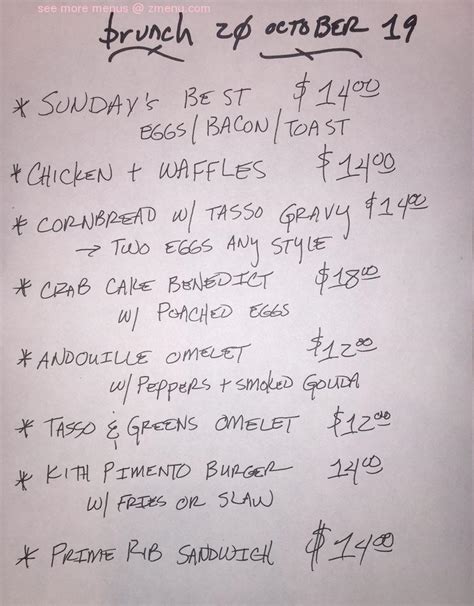 see more menus @ zmenu.com
brunch 20 OCTOBER 19
* SUNDAY'S BEST $14.00
EGGS/BACON/TOAST
* CHICKEN + WAFFLES $14.00
* CORNBREAD W/ TASSO GRAVY $14.00
→ TWO EGGS ANY STYLE
* CRAB CAKE BENEDICT $18.00
W/ POACHED EGGS
* ANDOUILLE OMELET $12.00
W/ PEPPERS + SMOKED GOUDA
* TASSO & GREENS OMELET $12.00
* KITH PIMENTO BURGER 14.00
W/ FRIES OR SLAW
* PRIME RIB SANDWICH $14.00